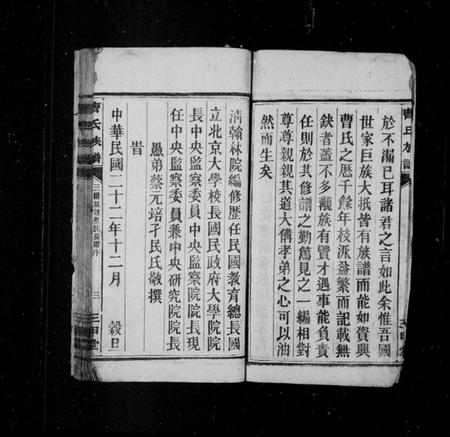 於不漏已耳諸君之言如此余惟吾國
世家巨族大抵皆有族譜而能如資興
曹氏之歷千餘年枝派益繁而記載無
缺者蓋不多覯族有賢才遇事能負責
任則於其修譜之勤萬見之一編相對
尊尊親親其道大備孝弟之心可以油
然而生矣
清翰林院編修歷任民國教育總長國
立北京大學校長國民政府大學院院
長中央監察委員中央監察院院長現
任中央監察委員兼中央研究院院長
愚弟蔡元培孑民氏敬撰
旹
中華民國二十二年十二月 穀旦
曹氏族譜
三